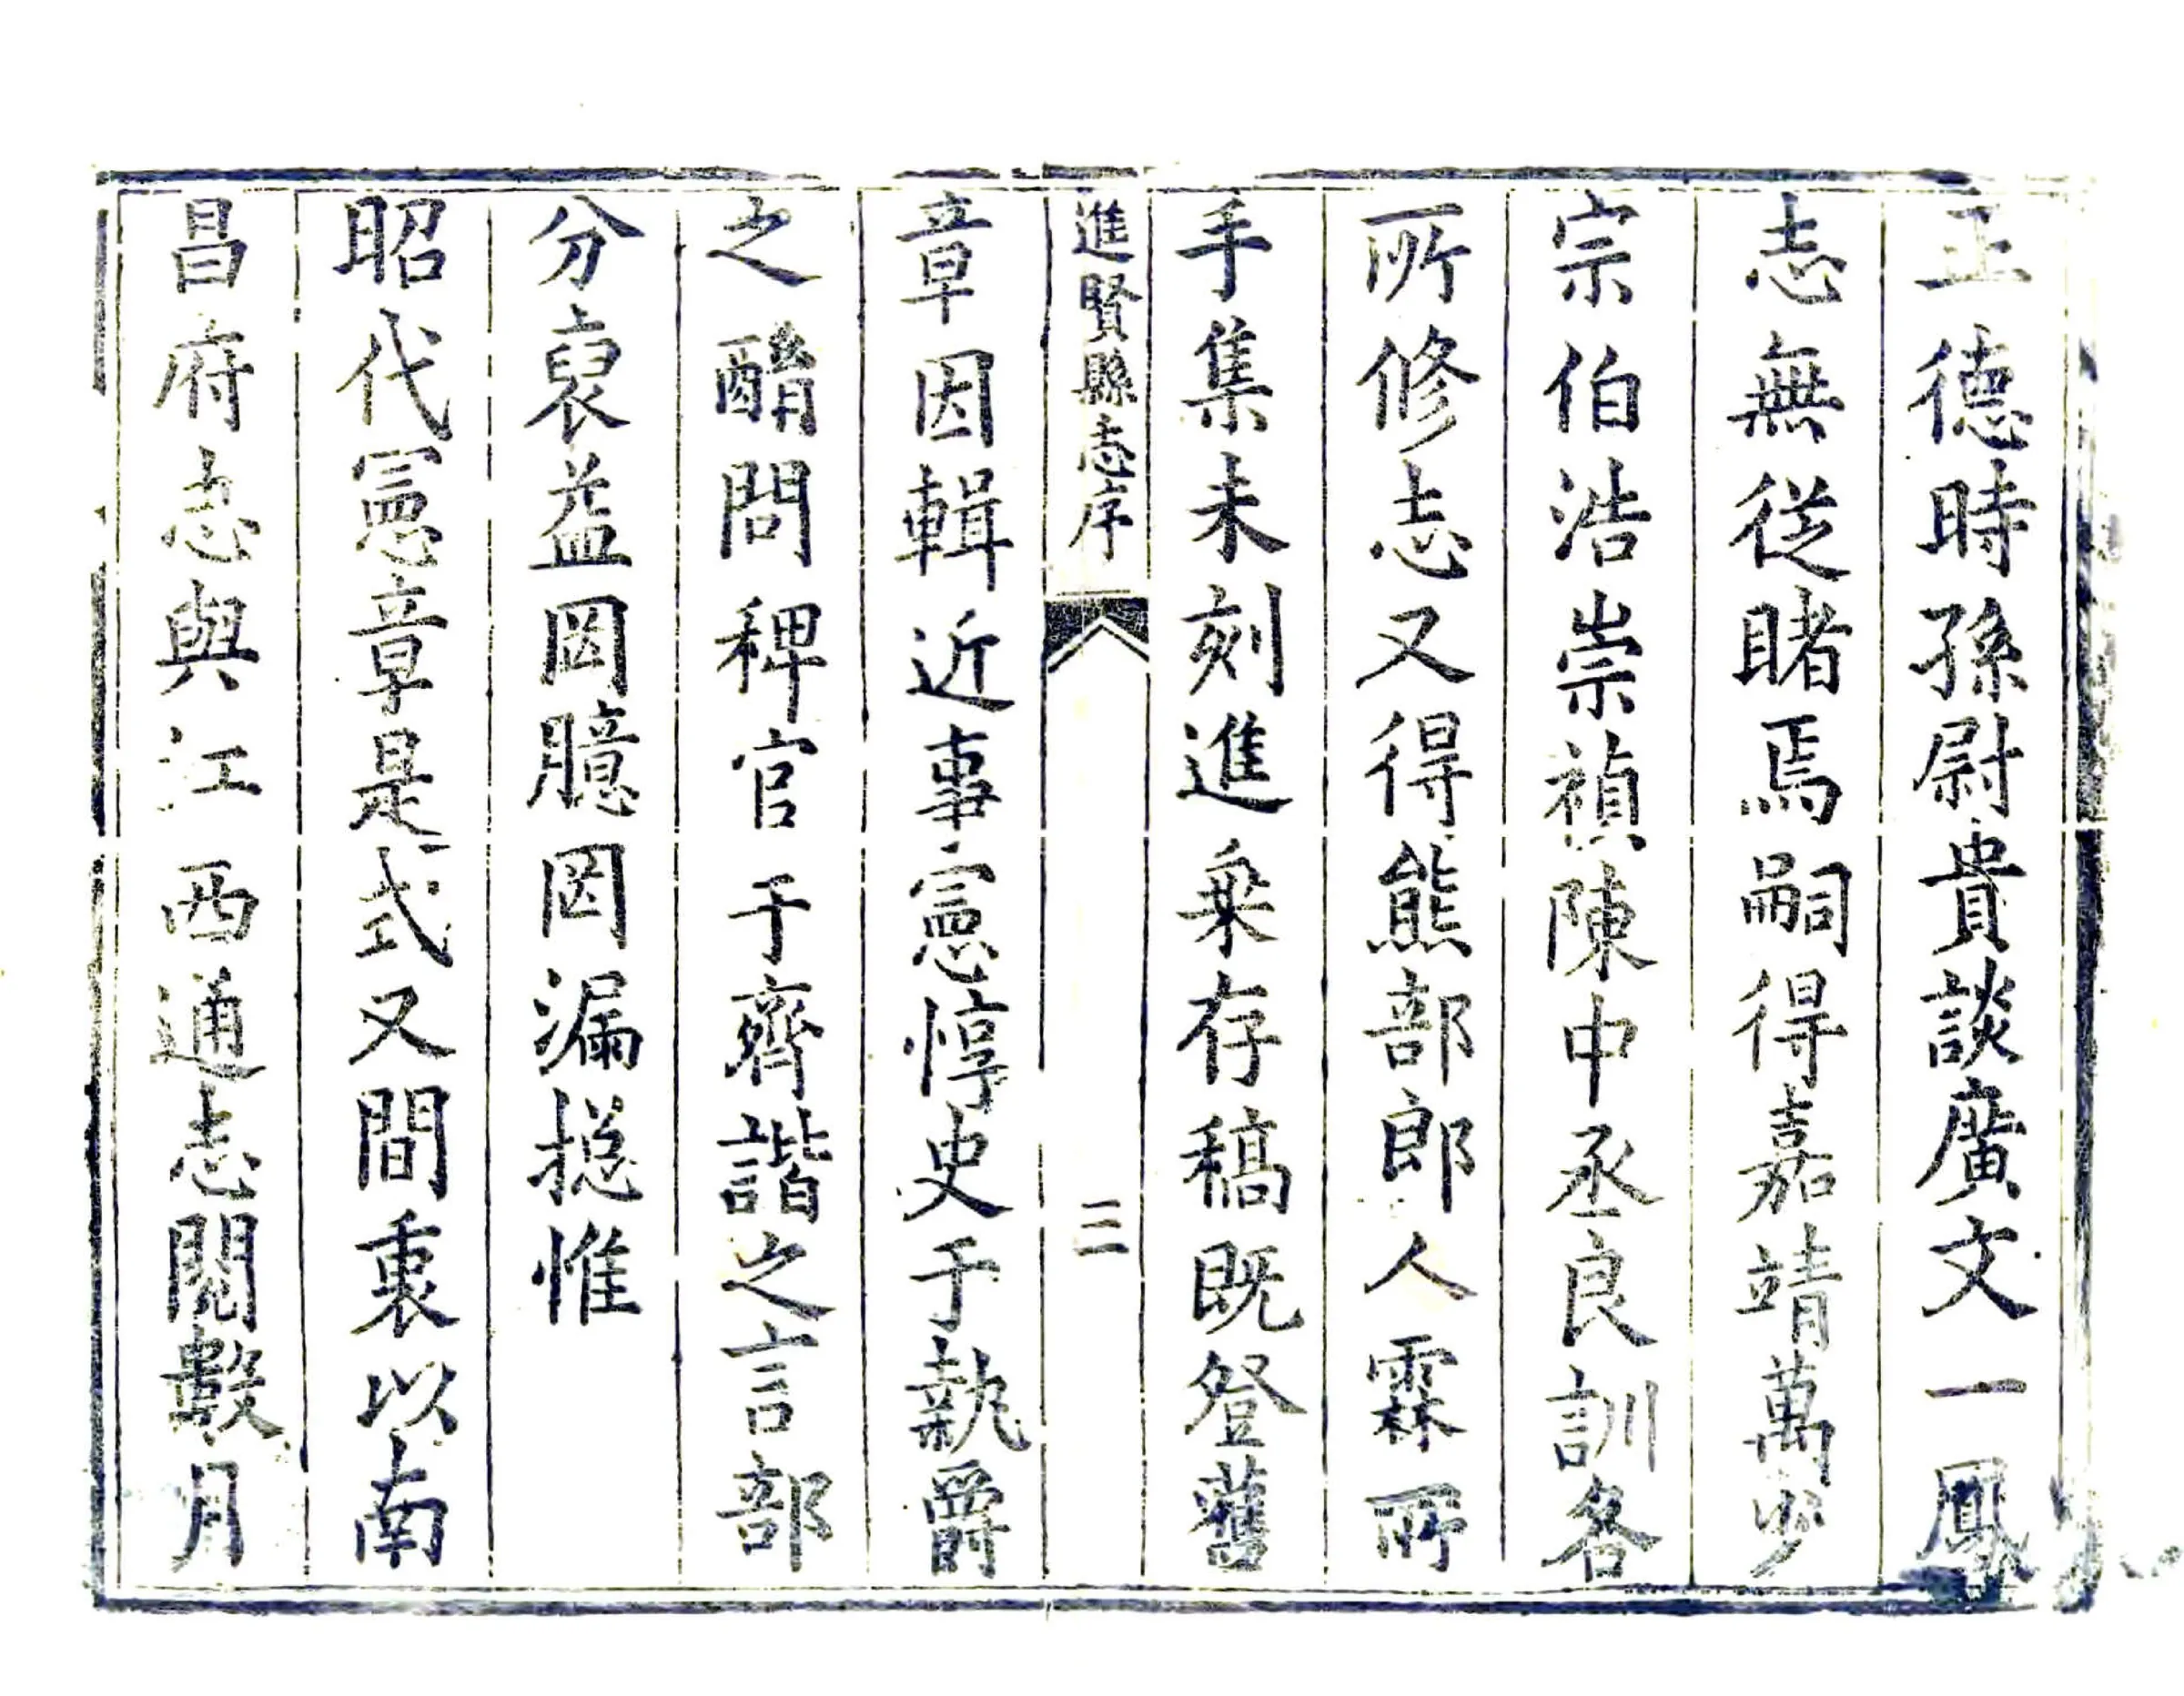 正德時孫尉貴談廣文一鳳
志無從睹焉嗣得嘉靖萬少
宗伯浩崇禎陳中丞良訓各
所修志又得熊部郎人霖所
手集未刻進乗存稿既登舊
進賢縣志序
三
章因輯近事憲惇史于執爵
之酳問稗官于齊諧之言部
分裒益罔臆罔漏揔惟
昭代憲章是式又間衷以南
昌府志與江西通志閱數月